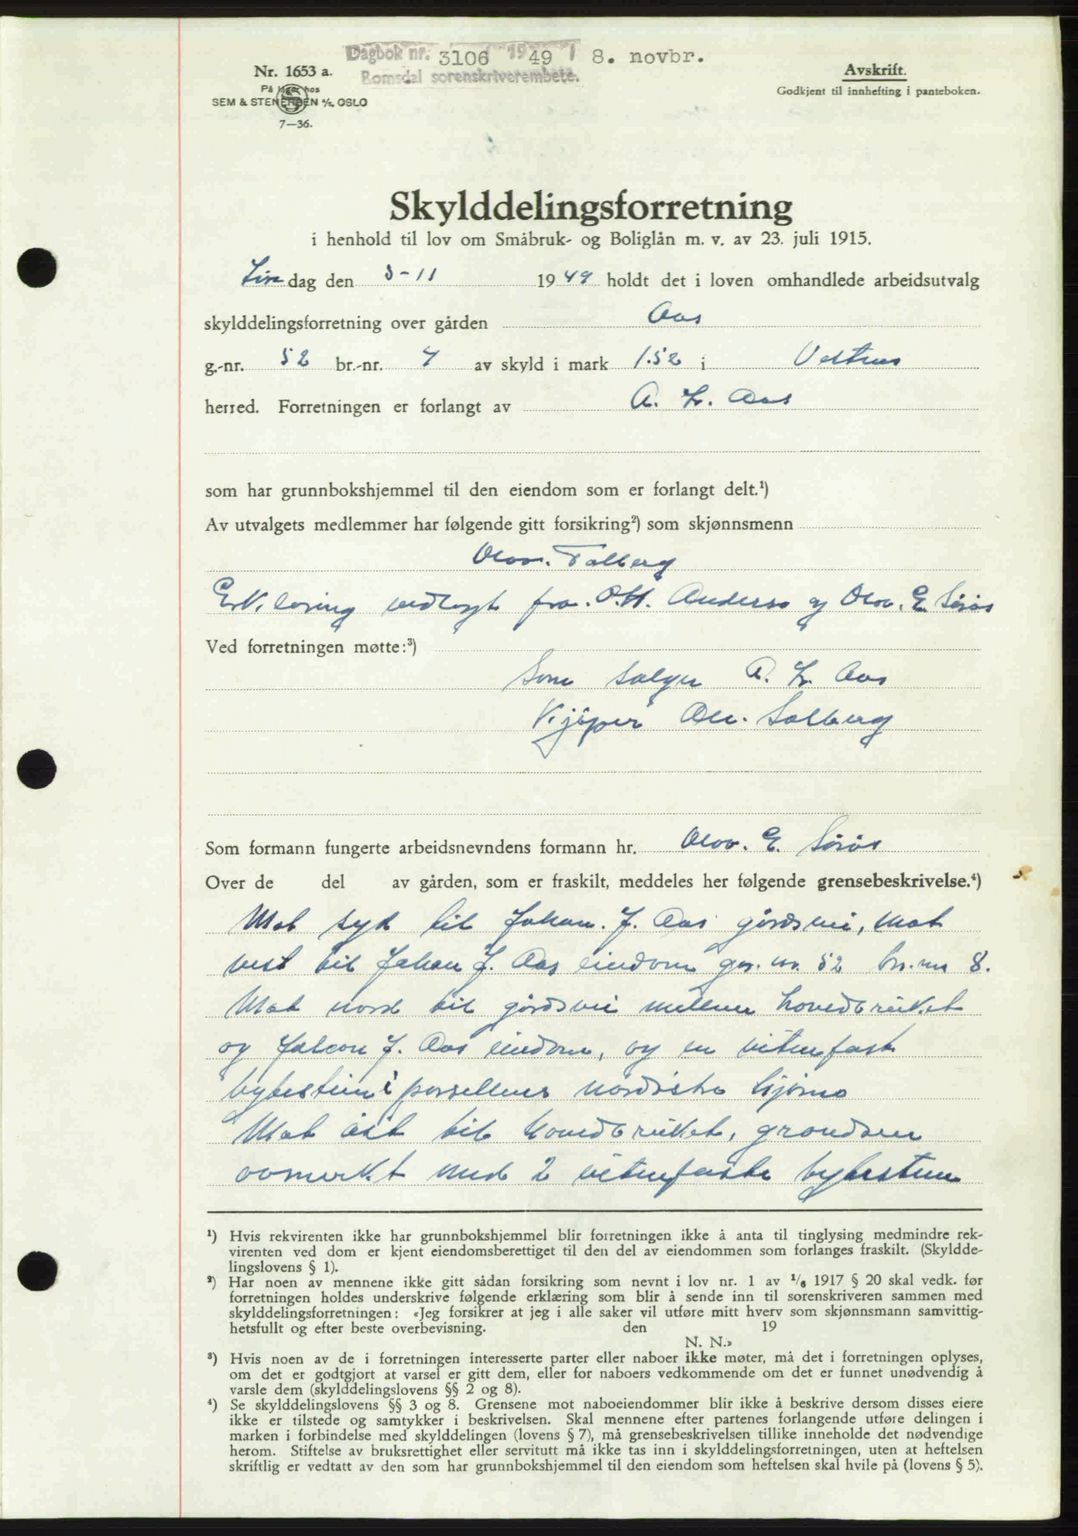 Dagbok nr. 3106 1949 8. novbr.
Romsdal sorenskriverembete.
Nr. 1653 a.
På lager hos
SEM & STENERSEN A/S, OSLO
7—36.
Avskrift.
Godkjent til innhefting i panteboken.
Skylddelingsforretning
i henhold til lov om Småbruk- og Boliglån m. v. av 23. juli 1915.
dag den 3-11 1949 holdt det i loven omhandlede arbeidsutvalg
skylddelingsforretning over gården Aas
g.-nr. 52 br.-nr. 7 av skyld i mark 1.52 i
herred. Forretningen er forlangt av A. L. Aas
som har grunnbokshjemmel til den eiendom som er forlangt delt.¹)
Av utvalgets medlemmer har følgende gitt forsikring²) som skjønnsmenn
Olov. Talberg
Erklæring vedlagt fra. O.H. Anderss og Olov. E. Sørås
Ved forretningen møtte:³)
Som selger A. L. Aas
Kjøper Ole. Solberg
Som formann fungerte arbeidsnevndens formann hr. Olov. E. Sørås
Over de del av gården, som er fraskilt, meddeles her følgende grensebeskrivelse.⁴)
Mot syd til Johan. J. Aas gårdsvei, mot
vest til Johan J. Aas eiendom gr. nr. 52 br. nr 8.
Mot nord til gårdsvei mellem hovedbruket
og J. Aas eiendom, og en vitenfast
bytestein i parsellens nordøstre hjørne
Mot øst til hovedbruket, grendsen
avmerkt med 2 vitenfaste bytesteine
¹) Hvis rekvirenten ikke har grunnbokshjemmel blir forretningen ikke å anta til tinglysing medmindre rek-
virenten ved dom er kjent eiendomsberettiget til den del av eiendommen som forlanges fraskilt. (Skyldde-
lingslovens § 1).
²) Har noen av mennene ikke gitt sådan forsikring som nevnt i lov nr. 1 av ¹/₆ 1917 § 20 skal vedk. før
forretningen holdes underskrive følgende erklæring som blir å sende inn til sorenskriveren sammen med
skylddelingsforretningen: «Jeg forsikrer at jeg i alle saker vil utføre mitt hverv som skjønnsmann samvittig-
hetsfullt og efter beste overbevisning. den 19
N. N.»
³) Hvis noen av de i forretningen interesserte parter eller naboer ikke møter, må det i forretningen oplyses,
om det er godtgjort at varsel er gitt dem, eller for naboers vedkommende om det er funnet unødvendig å
varsle dem (skylddelingslovens §§ 2 og 8).
⁴) Se skylddelingslovens §§ 3 og 8. Grensene mot naboeiendommer blir ikke å beskrive dersom disses eiere
ikke er tilstede og samtykker i beskrivelsen. Skal mennene efter partenes forlangende utføre delingen i
marken i forbindelse med skylddelingen (lovens § 7), må grensebeskrivelsen tillike inneholde det nødvendige
herom. Stiftelse av bruksrettighet eller servitutt må ikke tas inn i skylddelingsforretningen, uten at heftelsen
skriftlig er vedtatt av den som har grunnbokshjemmel til den eiendom som heftelsen skal hvile på (lovens § 5).